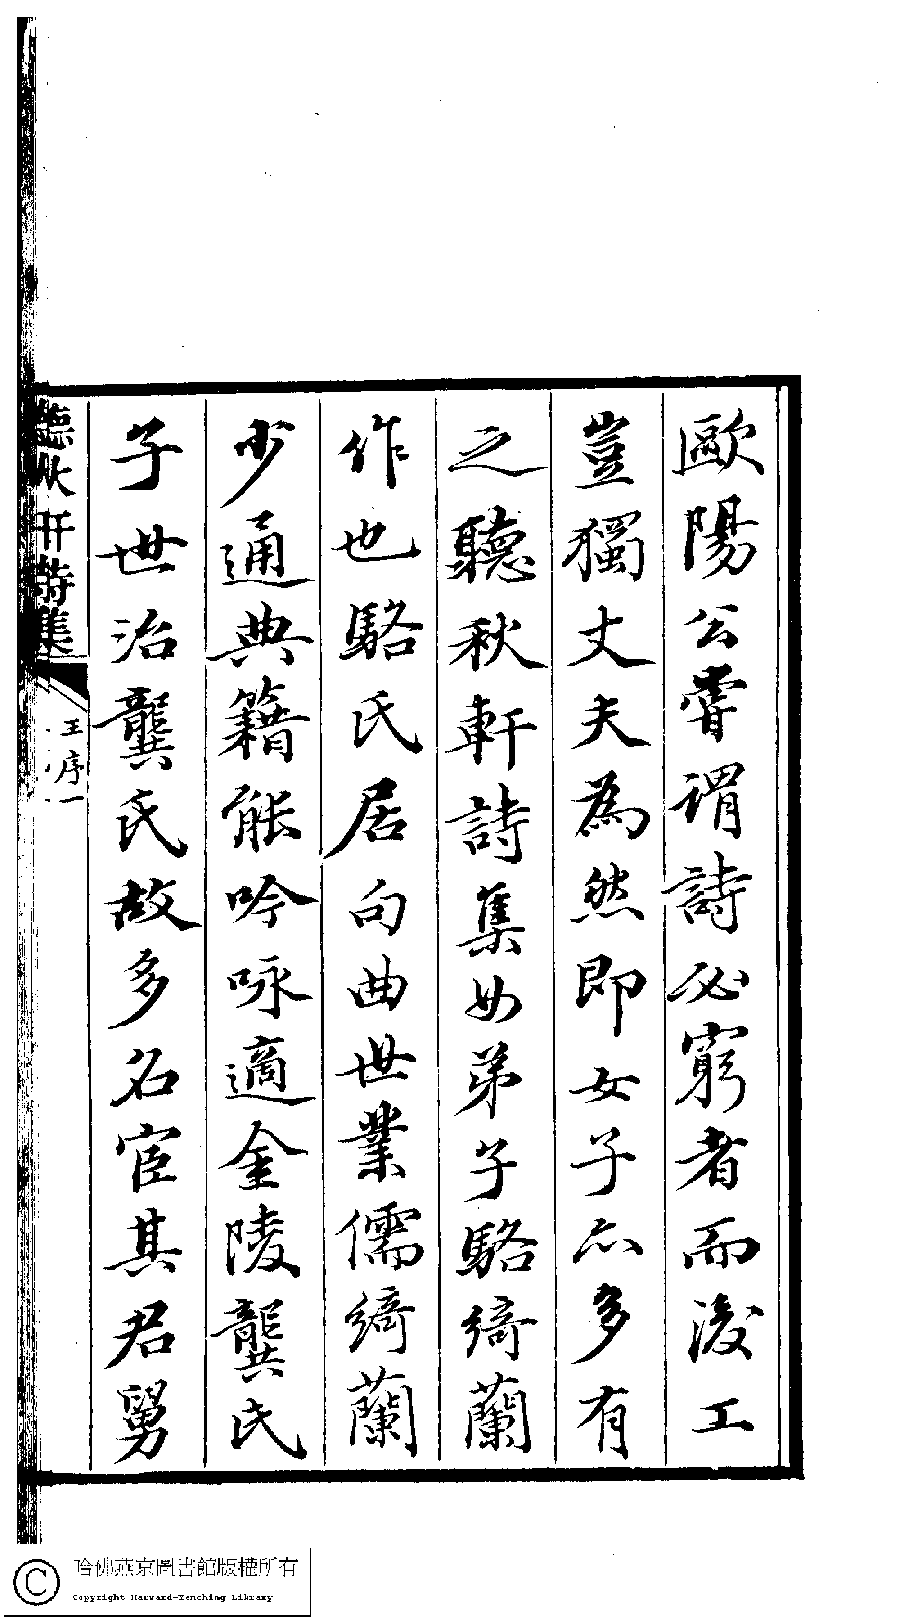 歐陽公嘗謂詩必窮者而後工
豈獨丈夫為然即女子亦多有
之聽秋軒詩集女弟子駱綺蘭
作也駱氏居句曲世業儒綺蘭
少通典籍能吟咏適金陵龔氏
子世治龔氏故多名宦其君舅
聽秋軒詩集
王序
一
哈佛燕京圖書館版權所有
Copyright Harvard-Yenching Library